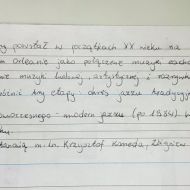 powstał w początkach XX wieku na
Orleanie jako połączenie muzyki
muzyki ludowej, artystycznej i
trzy etapy: okres jazzu
nowoczesnego - modern jazzu (po 1954)
m.in. Krzysztof Komeda, Zbigniew